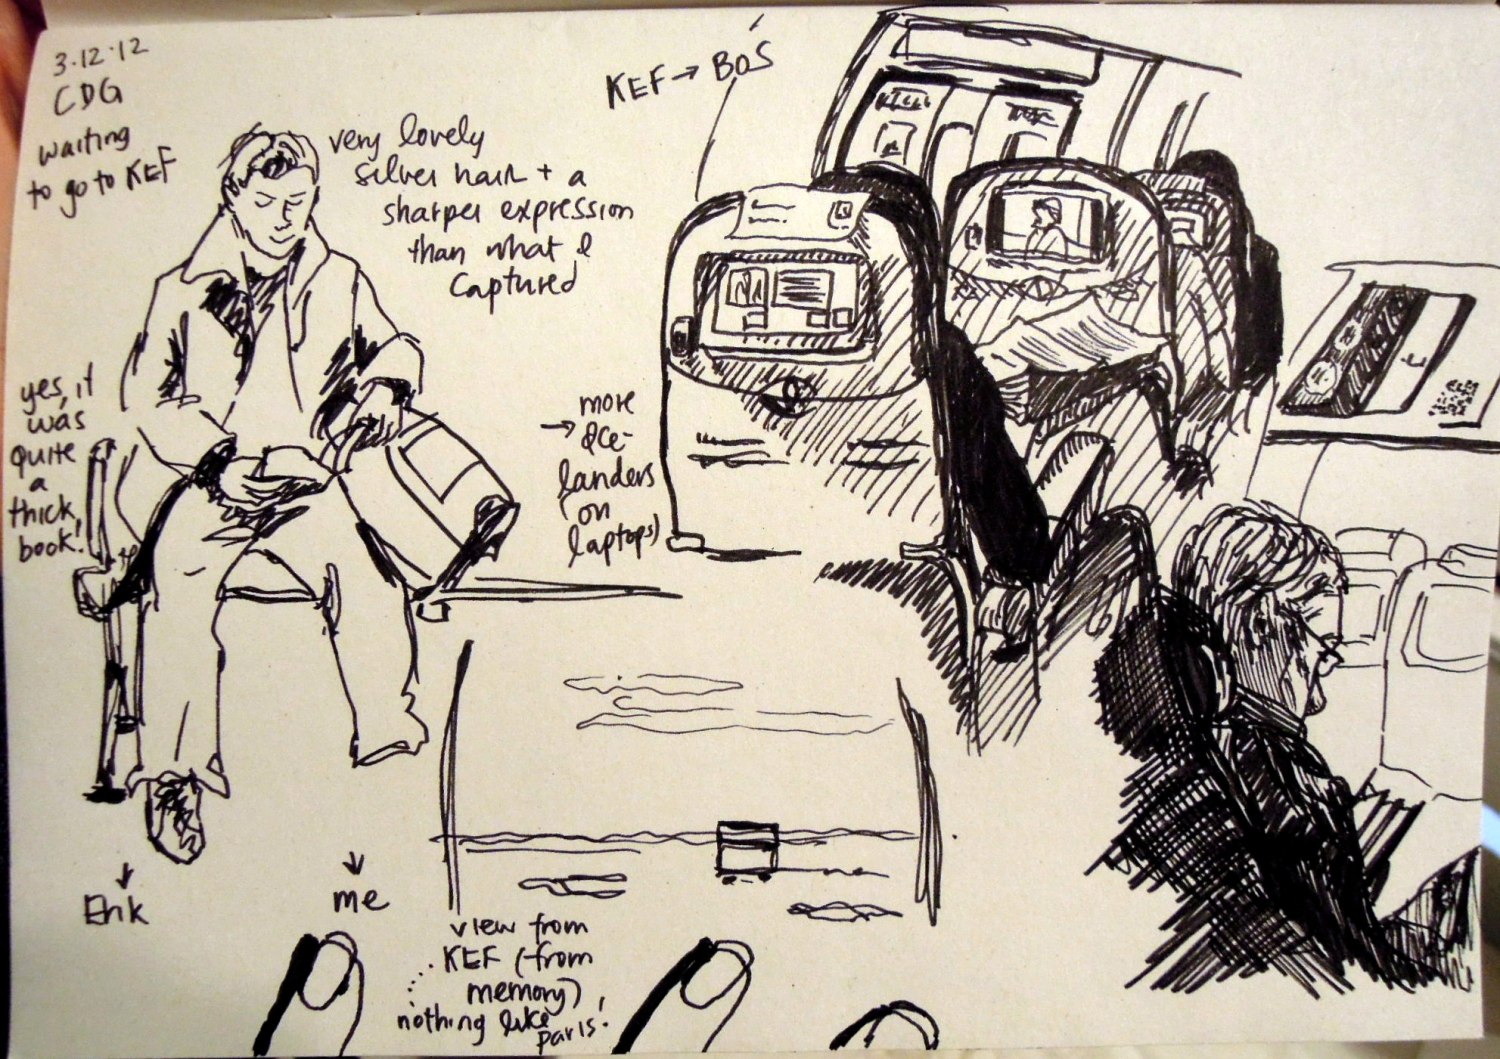 3.12.12
CDG
waiting
to go to KEF
very lovely
silver hair + a
sharper expression
than what I
captured
KEF → BOS
yes, it
was
quite
a
thick
book!
→ more
Ice-
landers
(on
laptops)
↓
Erik
↓
me
view from
KEF (from
memory)
nothing like
paris!